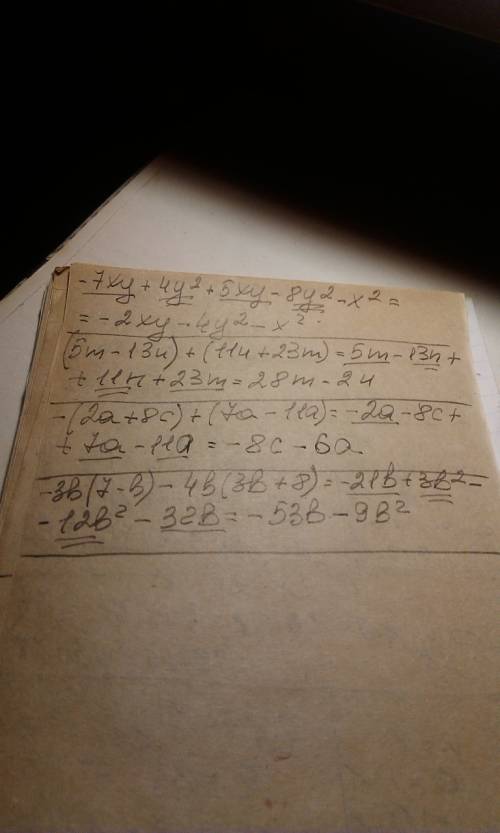 -7xy + 4y² + 5xy - 8y² - x² =
= -2xy - 4y² - x².
(5m - 13n) + (11n + 23m) = 5m - 13n +
+ 11n + 23m = 28m - 2n
-(2a + 8c) + (7a - 11a) = -2a - 8c +
+ 7a - 11a = -8c - 6a
-3b(7-b) - 4b(3b + 8) = -21b + 3b² -
- 12b² - 32b = -53b - 9b²